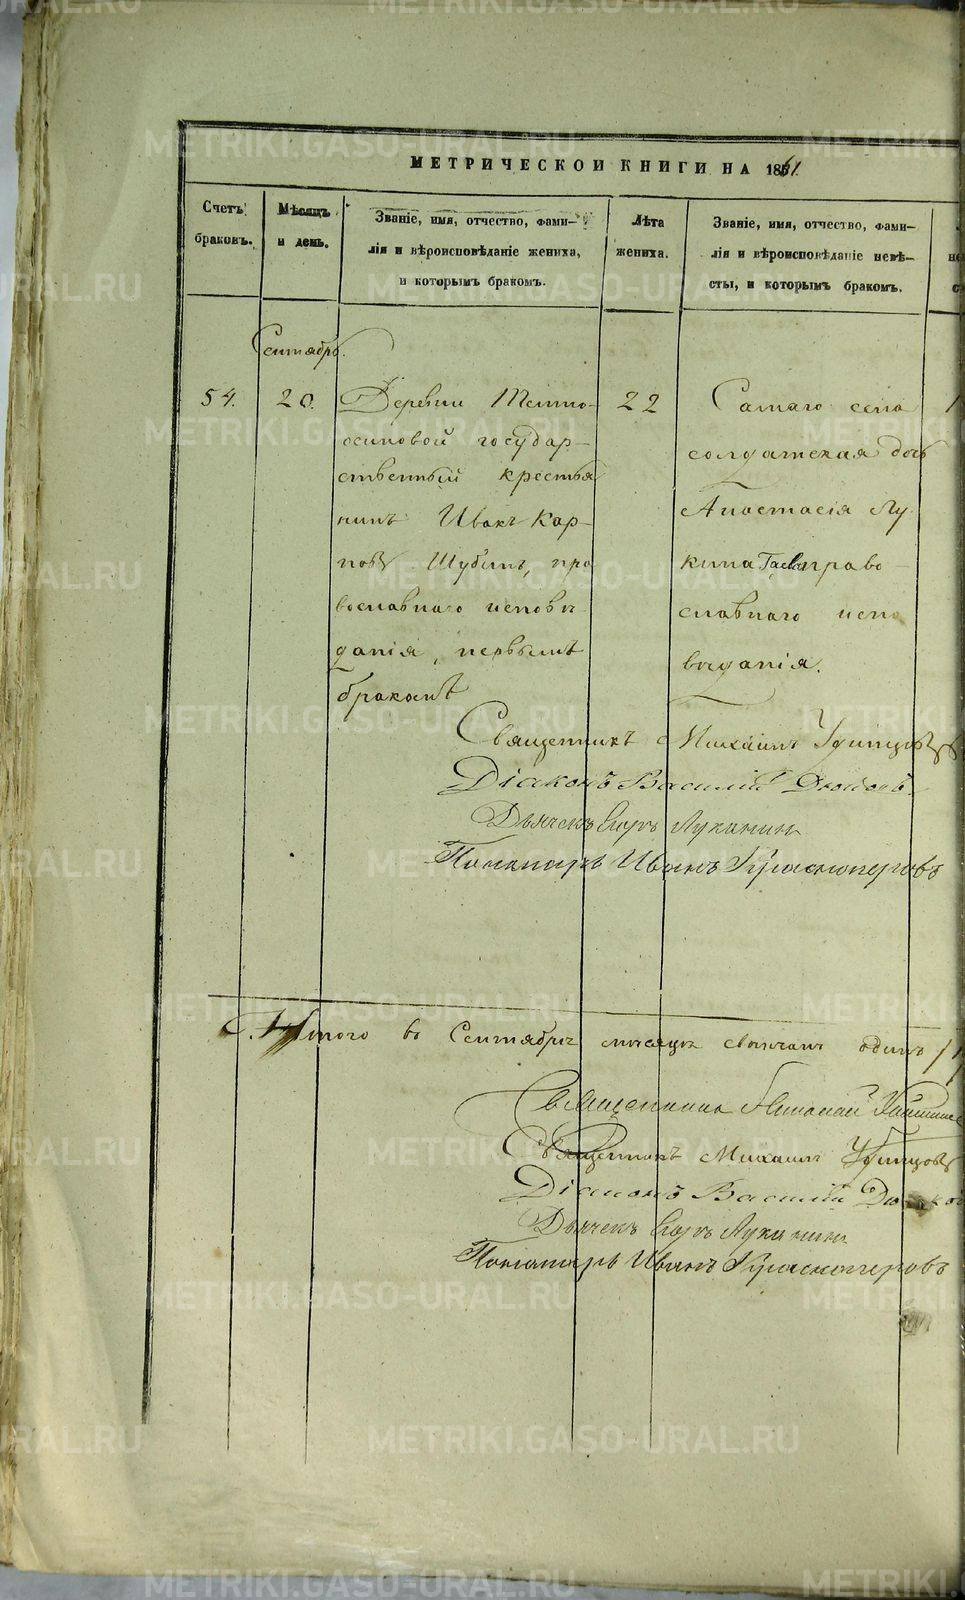 МЕТРИЧЕСКОЙ КНИГИ НА 1861.
Счетъ
браковъ.
Мѣсяцъ
и день.
Званіе, имя, отчество, фами-
лія и вѣроисповѣданіе жениха,
и которымъ бракомъ.
Лѣта
жениха.
Званіе, имя, отчество, фами-
лія и вѣроисповѣданіе невѣ-
сты, и которымъ бракомъ.
Сентябрь.
54.
20.
Деревни Темно-
осиновой государ-
ственный крестья
нинъ Иванъ Кар-
повъ Шубинъ, пра
вославнаго исповѣ-
данія, первымъ
бракомъ
22
Самаго села
солдатская дочь
Анастасія Лу
кина Гаева право-
славнаго испо
вѣданія.
Священникъ Михаилъ Удинцовъ
Діаконъ Василій
Дьячекъ Егоръ Лукинин
Пономарь Иванъ Красноперовъ
Итого въ Сентябрѣ мѣсяцѣ вѣнчанъ одинъ /1/
Священникъ Николай
Священникъ Михаилъ Удинцовъ
Діаконъ Василій
Дьячекъ Егоръ Лукинин
Пономарь Иванъ Красноперовъ
METRIKI.GASO-URAL.RU